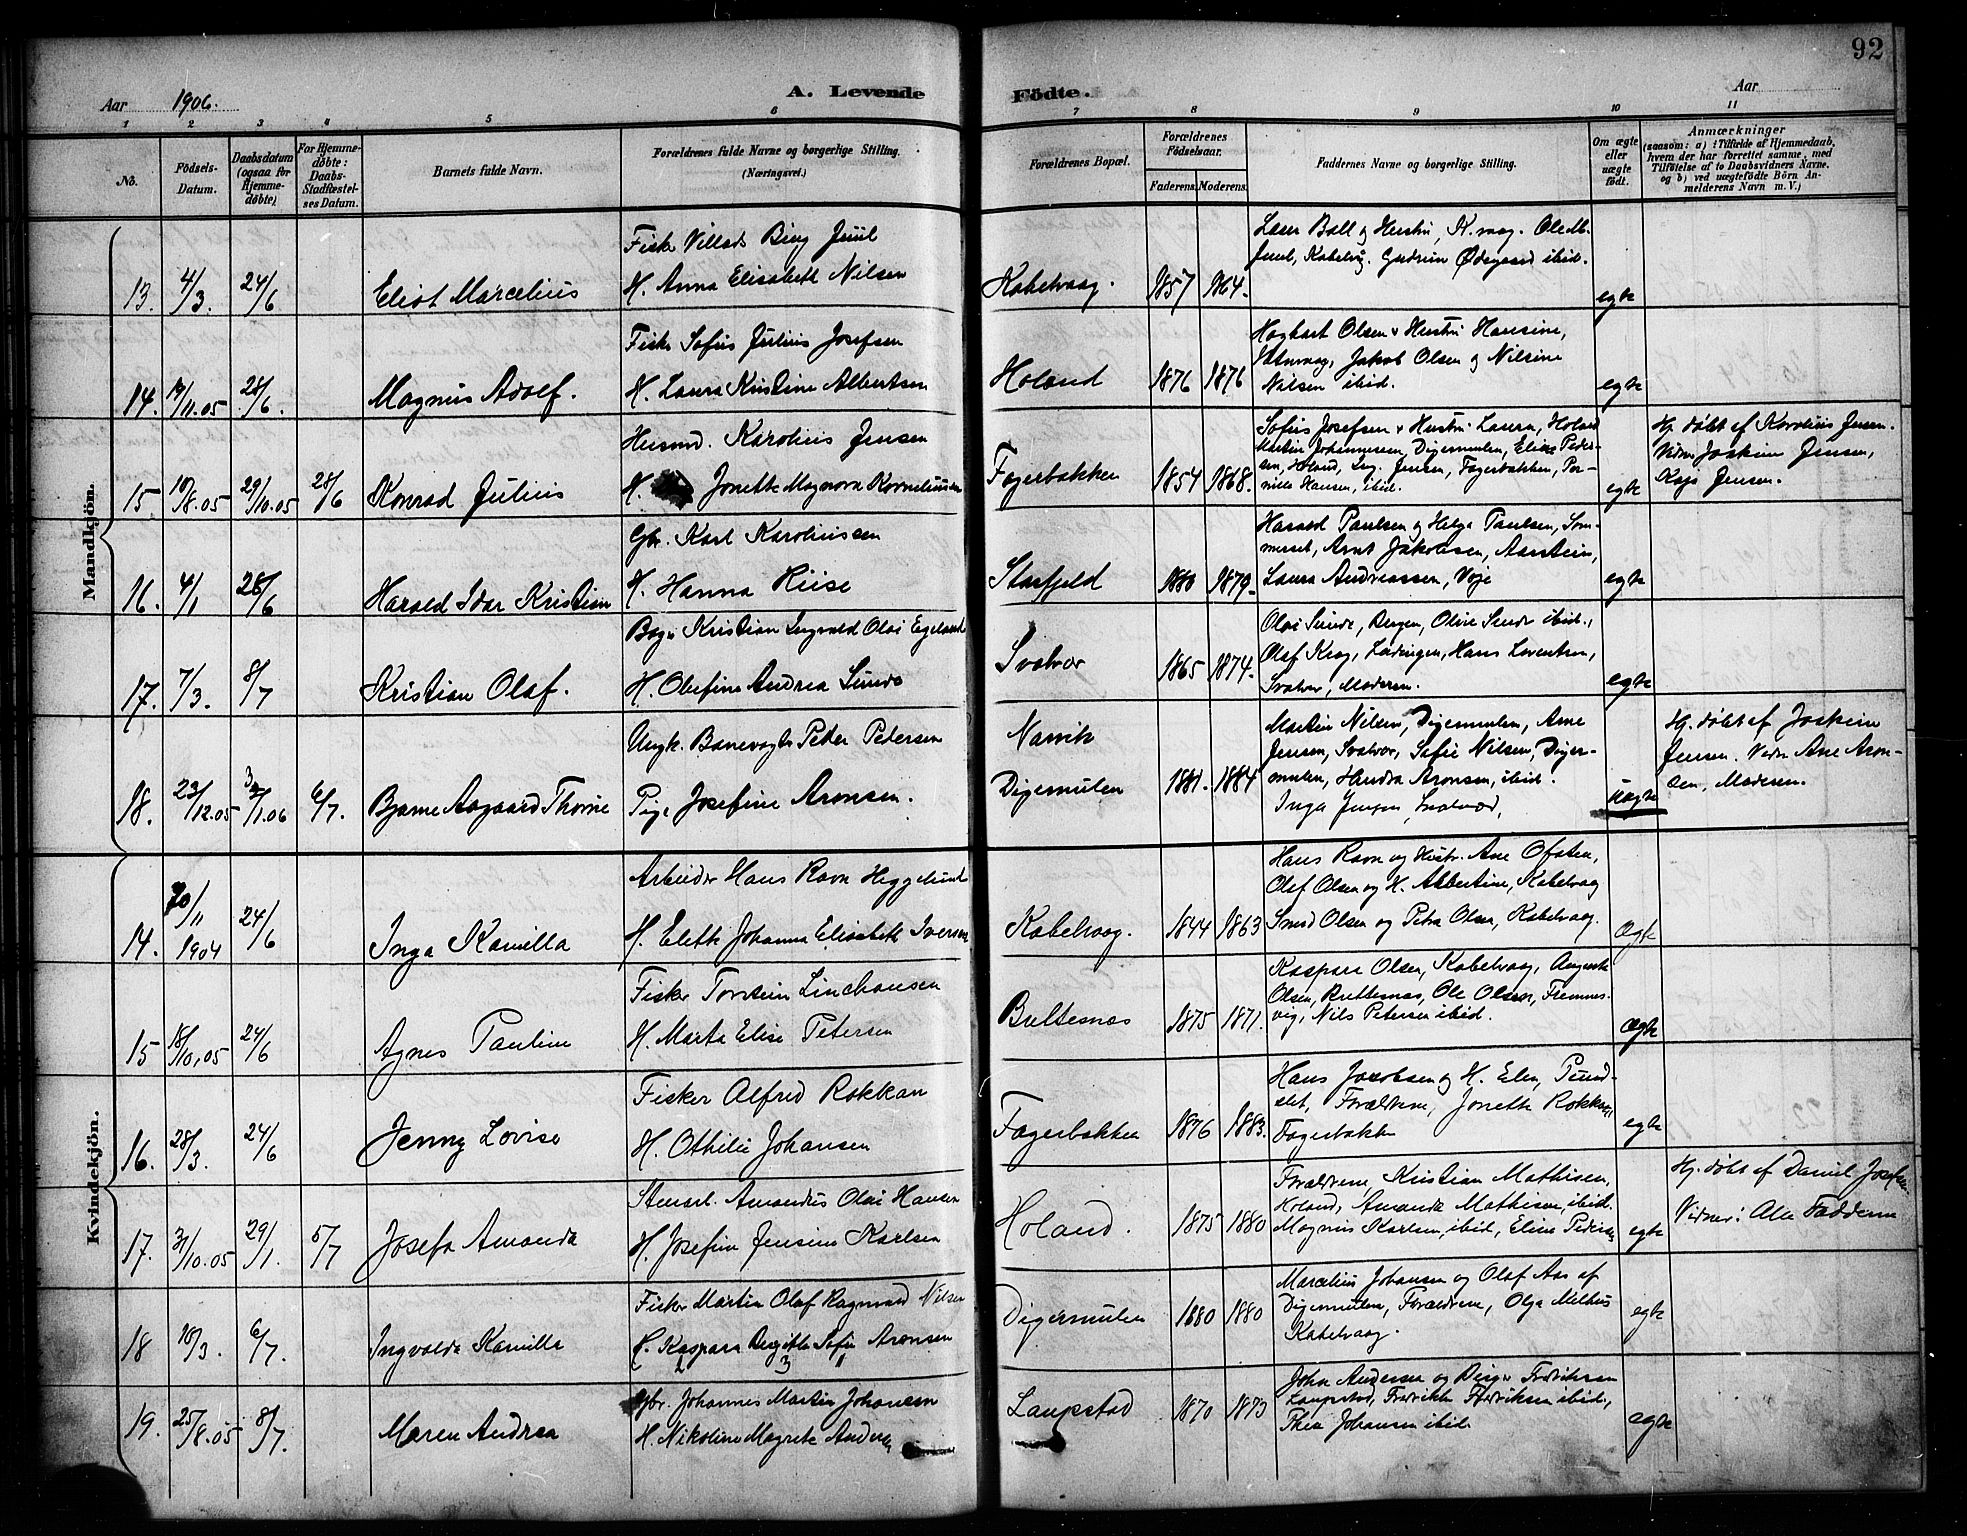 92
Aar 1906. A. Levende Födte. Aar
1 2 3 4 5 6 7 8 9 10 11
No. Födsels-Datum. Daabsdatum (ogsaa for Hjemmedøbte). For Hjemmedøbte: Daabs-Stadfæstelses Datum. Barnets fulde Navn. Forældrenes fulde Navne og borgerlige Stilling. (Næringsvei.) Forældrenes Bopæl. Forældrenes Födselsaar. Faderens. Moderens. Faddernes Navne og borgerlige Stilling. Om ægte eller uægte födt. Anmærkninger (saasom: a) i Tilfælde af Hjemmedaab, hvem der har forrettet samme, med Tilföielse af to Daabsvidners Navne, og b) ved uægtefödte Börn Anmelderens Navn m. V.)
Mandkjön.
13. 4/3. 24/6 Eliot Marcelius
Fisker Villads Bing Juul
H. Anna Elisabeth Nilsen
Kabelvaag. 1857 1864.
Laur Ball og Hustru, K.vaag. Ole M.
Juul, Kabelvåg. Gudrun Ødegaard ibid.
egte
14. 19/11.05 28/6. Magnus Adolf.
Fisker Sofus Julius Josefsen
H. Laura Kristine Albertsen
Holand 1876 1876
Hagbart Olsen & Hustru Hansine,
Jakob Olsen og Nilsine
Nilsen ibid.
egte
15. 10/8.05 29/10.05 28/6 Konrad Julius
Husmd. Karolius Jensen
H. Jonette Magnora Korneliussen
Fagerbakken 1854 1868.
Sofus Josefsen & Hustru Laura, Holand
Martin Johannessen, Digermulen, Elias Peder-
sen, Holand, Ing. Jensen, Fagerbakken, Per-
nille Hansen, ibid.
egte
Hj. døbt af Karolius Jensen.
Vidner Joakim Jensen,
Kaja Jensen.
16. 4/1 28/6 Harald Idar Kristian
Gbr. Karl Karoliussen
H. Hanna Riise
Storfjeld 1880 1879.
Harald Paulsen og Helga Paulsen, Som-
merset, Arnt Jakobsen, Aarstein,
Laura Andreassen, Voje
egte
17. 7/3. 8/7 Kristian Olaf.
Bager Kristian Ingvald Olai Egeland
H. Olufine Andrea Sunde
Svolvær 1865 1874.
Olai Sunde, Bergen, Oline Sunde ibid.,
Olaf Krog, Lødingen, Hans Lorentsen,
Svolvær, Moderen.
egte
18. 23/12.05 3/1.06 6/7. Bjarne Aagaard Thorne
Ungk. Banevogter Peder Petersen
Pige Josefine Aronsen.
Narvik
Digermulen 1881. 1884
Martin Nilsen, Digermulen, Arne
Jensen, Svolvær, Sofie Nilsen, Diger-
mulen, Handra Aronsen, ibid.
Inga Jensen, Svolvær,
uægte
Hj. døbt af Joakim
Jensen. Vidn. Ane Aron-
sen, Moderen.
Kvindekjön.
14. 20/11 1904 24/6 Inga Kamilla
Arbeider Hans Ravn Heggelund
H. Elette Johanna Elisabeth Iversen
Kabelvaag. 1844 1863
Hans Ravn og Hustr. Ane Ofoten,
Olaf Olsen og H. Albertine, Kabelvaag
Olsen og Petra Olsen, Kabelvaag.
Ægte
15 18/10.05 24/6 Agnes Pauline
Fisker Torstein Lindhansen
H. Marta Elise Petersen
Bultesnæs 1875 1871.
Kaspara Olsen, Kabelvaag, Auguste
Olsen, Bultesnæs, Ole Olsen, Fremnes-
vig, Nils Petersen ibid.
Ægte
16. 28/3. 24/6 Jenny Lovise
Fisker Alfred Rokkan
H. Othilie Johansen
Fagerbakken 1876 1883.
Hans Jacobsen og H. Elen, Pund-
slet, Forældrene, Jonette Rokkan,
Fagerbakken
egte
17. 3/10.05 29/1. 5/7 Josefa Amanda
Stensel. Amandus Olai Hansen
H. Josefine Jensine Karlsen
Holand. 1875 1880
Forældrene, Kristian Mathisen,
Holand, Amanda Mathisen, ibid.
Magnus Karlsen, ibid, Eline Pedersen
egte
Hj. døbt af Daniel Josefsen.
Vidner: Alle Fadderne
18 18/3. 6/7. Ingvalda Kamilla
Fisker Martin Olaf Ragnvald Nilsen
H. Kaspara Birgitte Sofie Aronsen
2 3 1
Digermulen 1880 1880
Marcelius Johansen og Olaf Aas af
Digermulen, Forældrene, Olga Melhus
Kabelvaag.
egte
19. 25/8.05 8/7. Maren Andrea
Gbr. Johannes Martin Johansen
H. Nikoline Magrete Anders.
Laupstad 1870 1873
John Andersen og Berger Fredriksen
Laupstad, Fredrikke Fredriksen ibid.,
Thea Johansen ibid.
egte